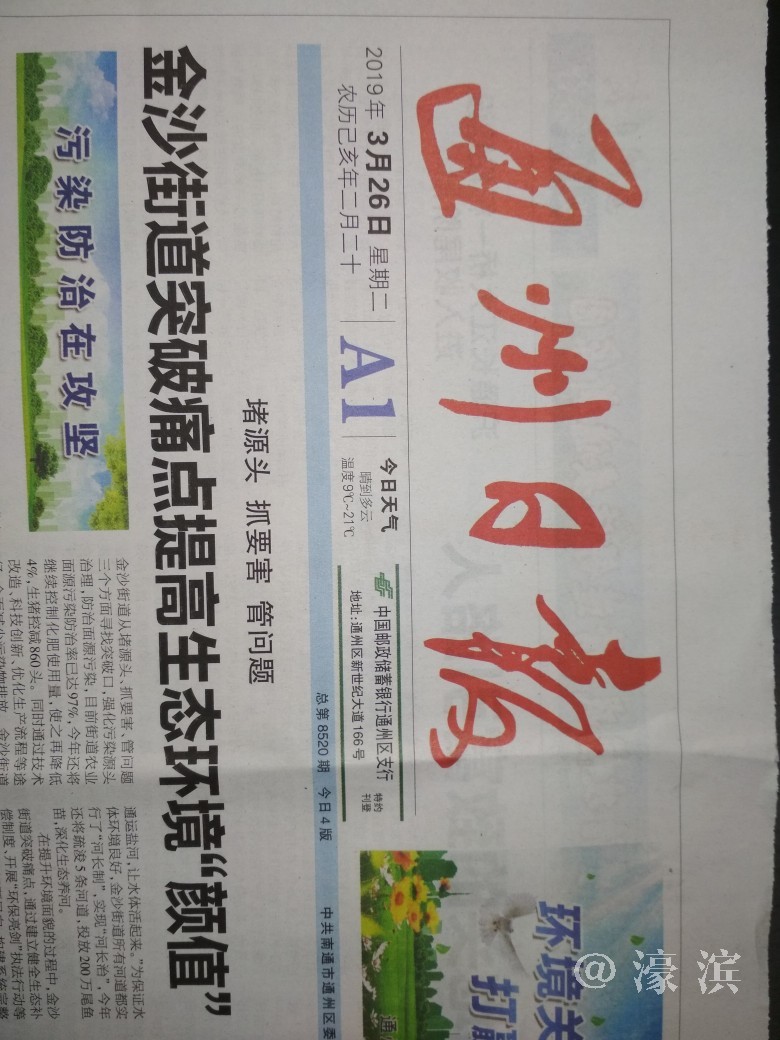 通州日报
2019年 3月26日 星期二
农历己亥年二月二十
A1
今日天气
晴到多云
温度9℃~21℃
中国邮政储蓄银行通州区支行
地址：通州区新世纪大道166号
特约
刊登
环境关
打
总第8520期 今日4版
中共南通市通州区委
堵源头 抓要害 管问题
金沙街道突破痛点提高生态环境“颜值”
污染防治在攻坚
金沙街道从堵源头、抓要害、管问题
三个方面寻找突破口，强化污染源头
治理，防治面源污染，目前街道农业
面源污染防治率已达97%，今年还将
继续控制化肥使用量，使之再降低
4%，生猪控减860头。同时通过技术
改造、科技创新、优化生产流程等途
通运盐河，让水体活起来。”为保证水
体环境良好，金沙街道所有河道都实
行了“河长制”，实现“河长治”，今年
还将疏浚5条河道，投放200万尾鱼
苗，深化生态养河。
在提升环境面貌的过程中，金沙
街道突破痛点，通过建立健全生态补
偿制度、开展“环保亮剑”执法行动等
@濠滨